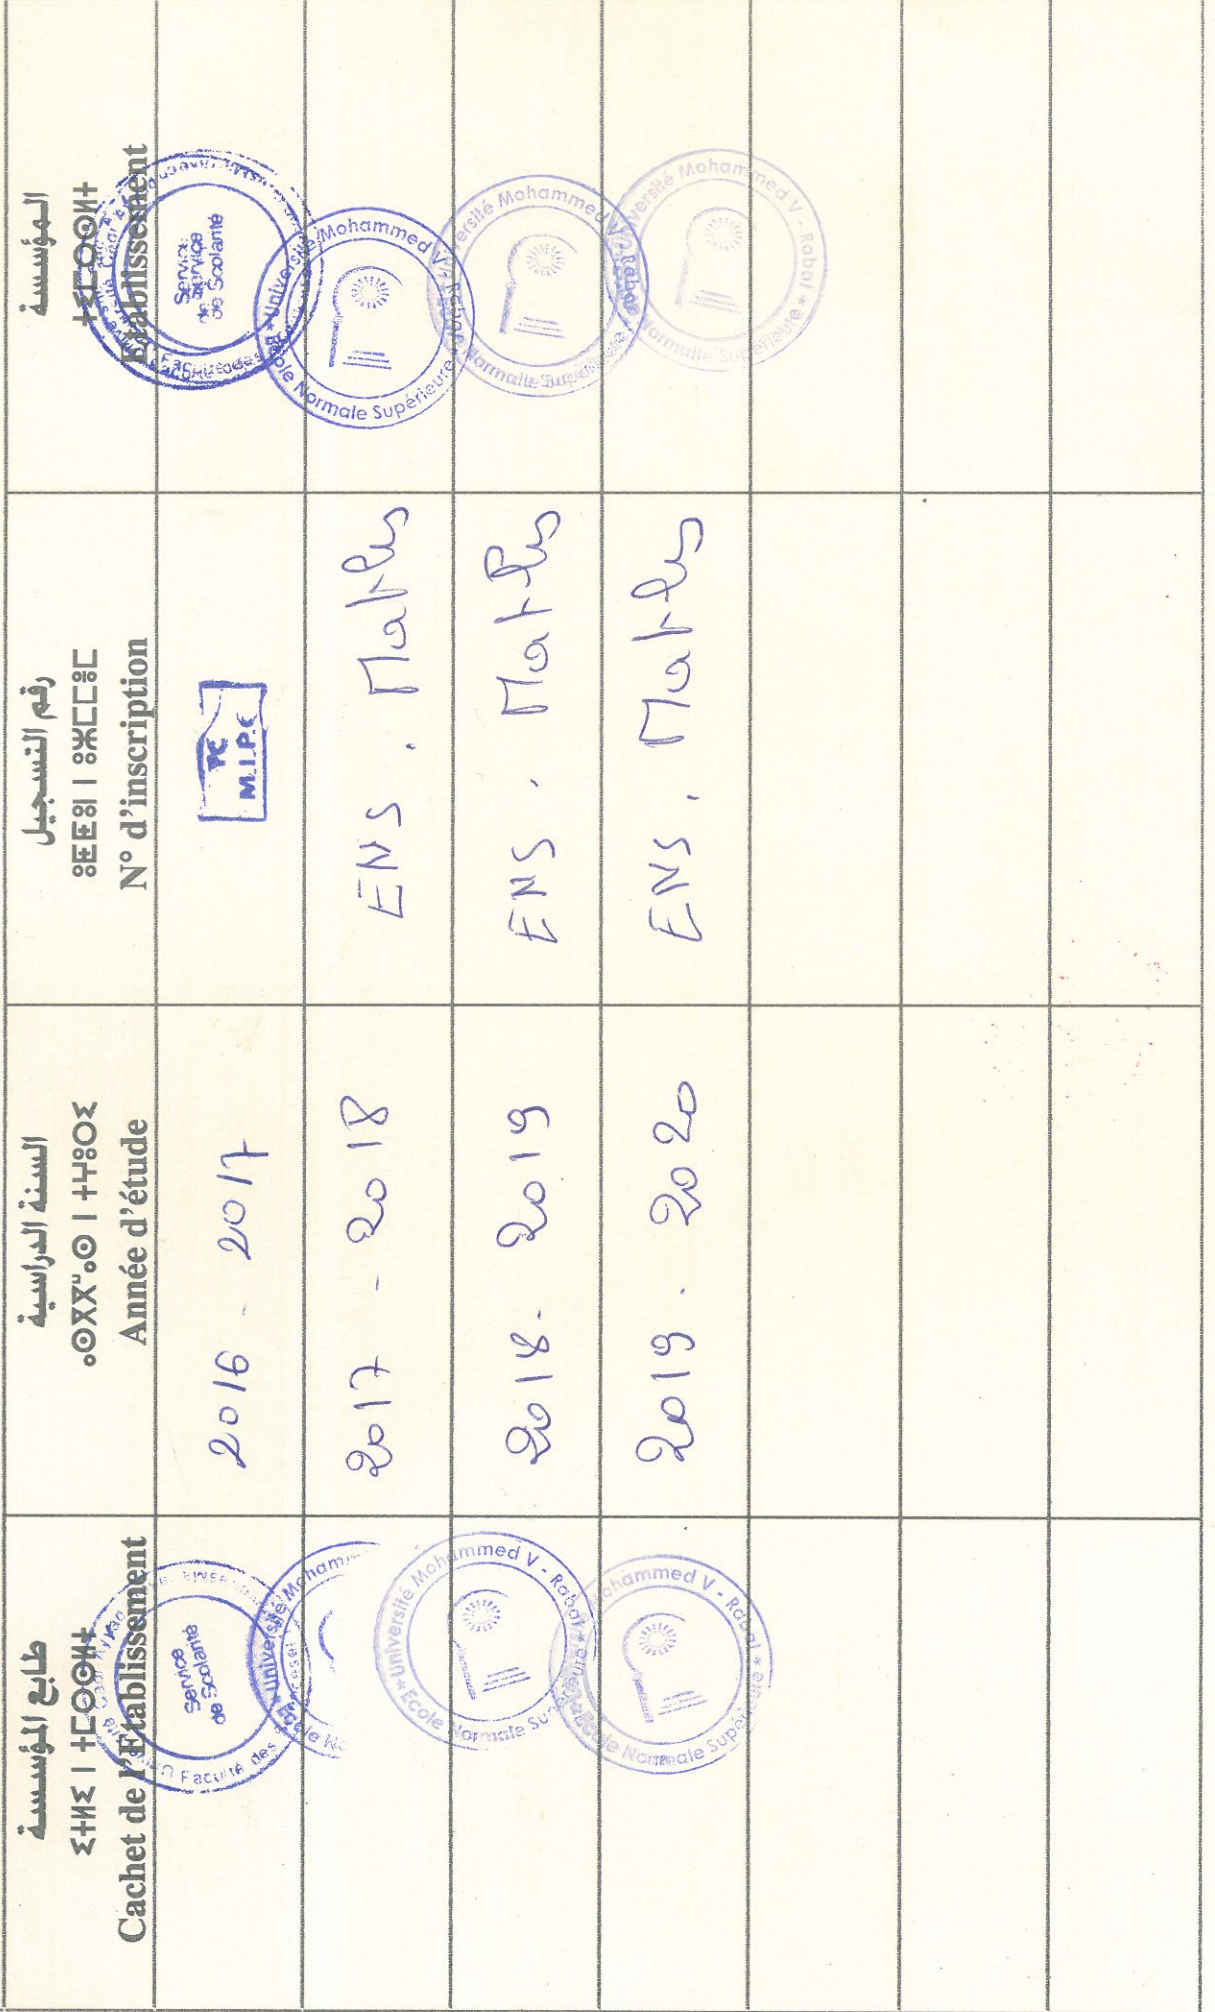 طابع المؤسسة
ⵉⵜⵍⵉ ⵏ ⵜⵎⵙⵙⵍⵜ
Cachet de l'Etablissement
السنة الدراسية
ⴰⵙⴳⴳⵯⴰⵙ ⵏ ⵜⵖⵓⵔⵉ
Année d'étude
رقم التسجيل
ⵓⵟⵟⵓⵏ ⵏ ⵓⵣⵎⵎⴻⵎ
N° d'inscription
المؤسسة
Etablissement
Service
de Scolarité
Faculté des
2016 - 2017
PC
M.I.P.C
Service
de Scolarité
2017 - 2018
ENS. Maths
Université Mohammed V - Rabat
Ecole Normale Supérieure
Université Mohammed V - Rabat
Ecole Normale Supérieure
2018 - 2019
ENS. Maths
Université Mohammed V - Rabat
Normale Supérieure
Mohammed V - Rabat
Ecole Normale Supérieure
2019 - 2020
ENS. Maths
Université Mohammed V - Rabat
Normale Supérieure